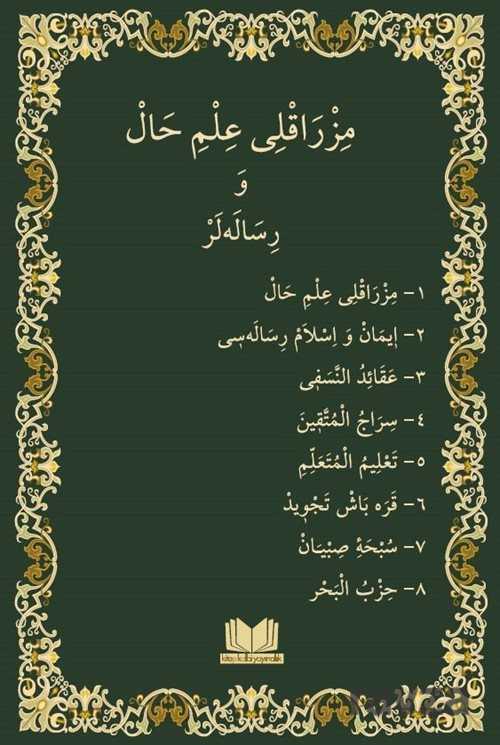 مِزْرَاقْلِى عِلْمِ حَالْ
وَ
رِسَالَەلَرْ
١- مِزْرَاقْلِى عِلْمِ حَالْ
٢- اِيمَانْ وَ اِسْلَامْ رِسَالَەسِى
٣- عَقَائِدُ النَّسَفِى
٤- سِرَاجُ الْمُتَّقِينَ
٥- تَعْلِيمُ الْمُتَعَلِّمِ
٦- قَرَه بَاشْ تَجْوِيدْ
٧- سُبْحَۀ صِبْيَانْ
٨- حِزْبُ الْبَحْر
kitap kalbi yayıncılık